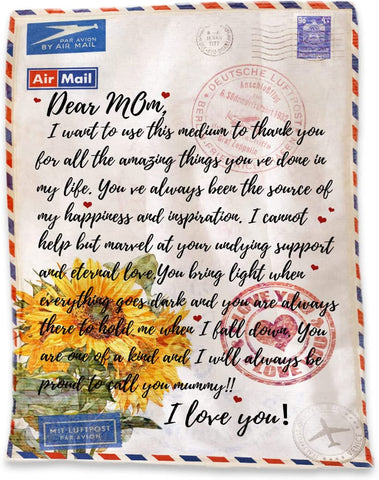 PAR AVION
BY AIR MAIL
Air Mail
DEUTSCHE LUFTPOST
Dear MOm,
I want to use this medium to thank you
for all the amazing things you ve done in
my life. You ve always been the source of
my happiness and inspiration. I cannot
help but marvel at your undying support
and eternal love.You bring light when
everything goes dark and you are always
there to hold me when I fall down. You
are one of a kind and I will always be
proud to call you mummy!!
I love you!
MIT LUFTPOST
PAR AVION